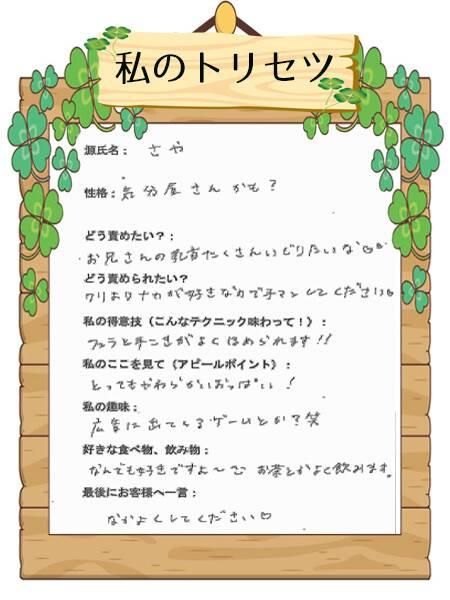 私のトリセツ
源氏名： さや
性格：気分屋さんかも？
どう責めたい？：
お兄さんの乳首たくさんいじりたいな♡♡
どう責められたい？
クリよりナカが好きなので手マンしてください♡
私の得意技（こんなテクニック味わって！）：
フェラと手コキがよくほめられます!!
私のここを見て《アピールポイント》：
とってもやわらかいおっぱい！
私の趣味：
広告に出てくるゲームとか？笑
好きな食べ物、飲み物：
なんでも好きですよ〜 お茶とかよく飲みます。
最後にお客様へ一言：
なかよくしてください♡